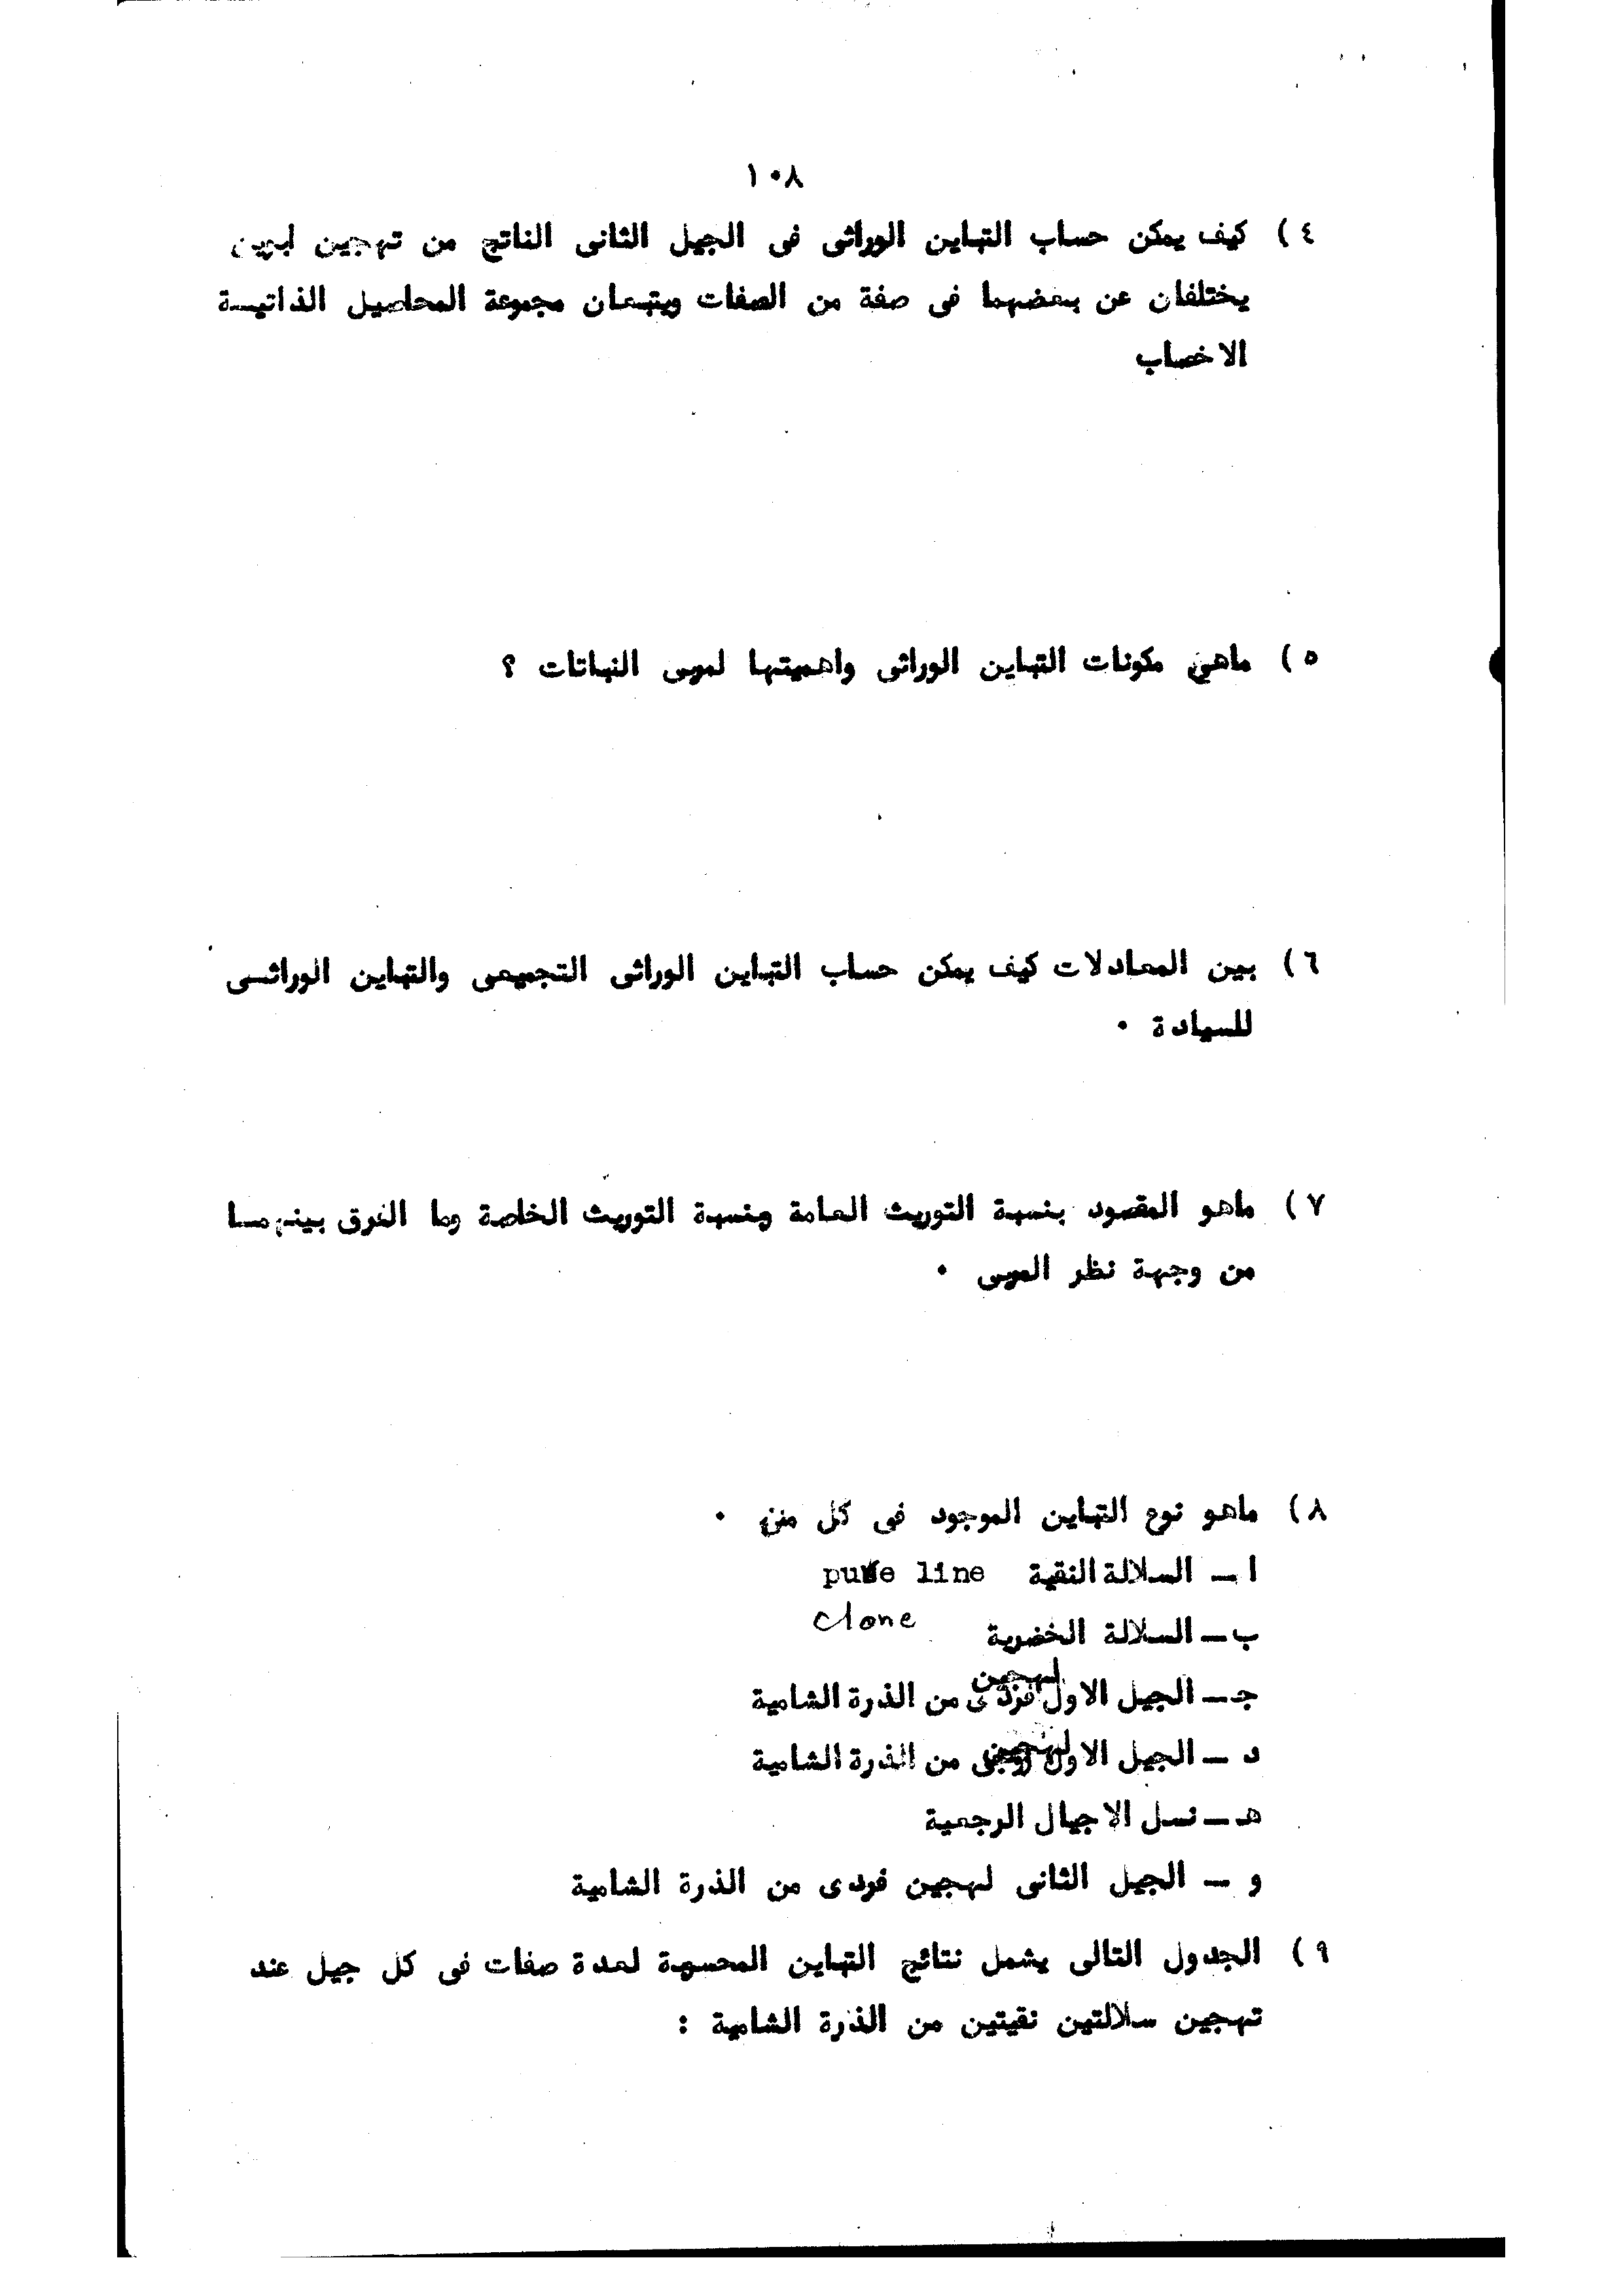 ١٠٨
٤) كيف يمكن حساب التباين الوراثى فى الجيل الثانى الناتج من تهجين ابوين
يختلفان عن بعضهما فى صفة من الصفات ويتبعان مجموعة المحاصيل الذاتيـة
الاخصاب
٥) ماهى مكونات التباين الوراثى واهميتها لمربى النباتات ؟
٦) بين المعادلات كيف يمكن حساب التباين الوراثى التجميعى والتباين الوراثـى
للسيادة ٠
٧) ماهو المقصود بنسبة التوريث العامة ونسبة التوريث الخاصة وما الفرق بينهمـا
من وجهة نظر المربى ٠
٨) ماهو نوع التباين الموجود فى كل من ٠
ا ـ السلالة النقية pure line
ب ـ السلالة الخضرية clone
جـ ـ الجيل الاول لهجين فردى من الذرة الشامية
د ـ الجيل الاول لهجين زوجى من الذرة الشامية
هـ ـ نسل الاجيال الرجعية
و ـ الجيل الثانى لهجين فردى من الذرة الشامية
٩) الجدول التالى يشمل نتائج التباين المحسوبة لعدة صفات فى كل جيل عند
تهجين سلالتين نقيتين من الذرة الشامية :